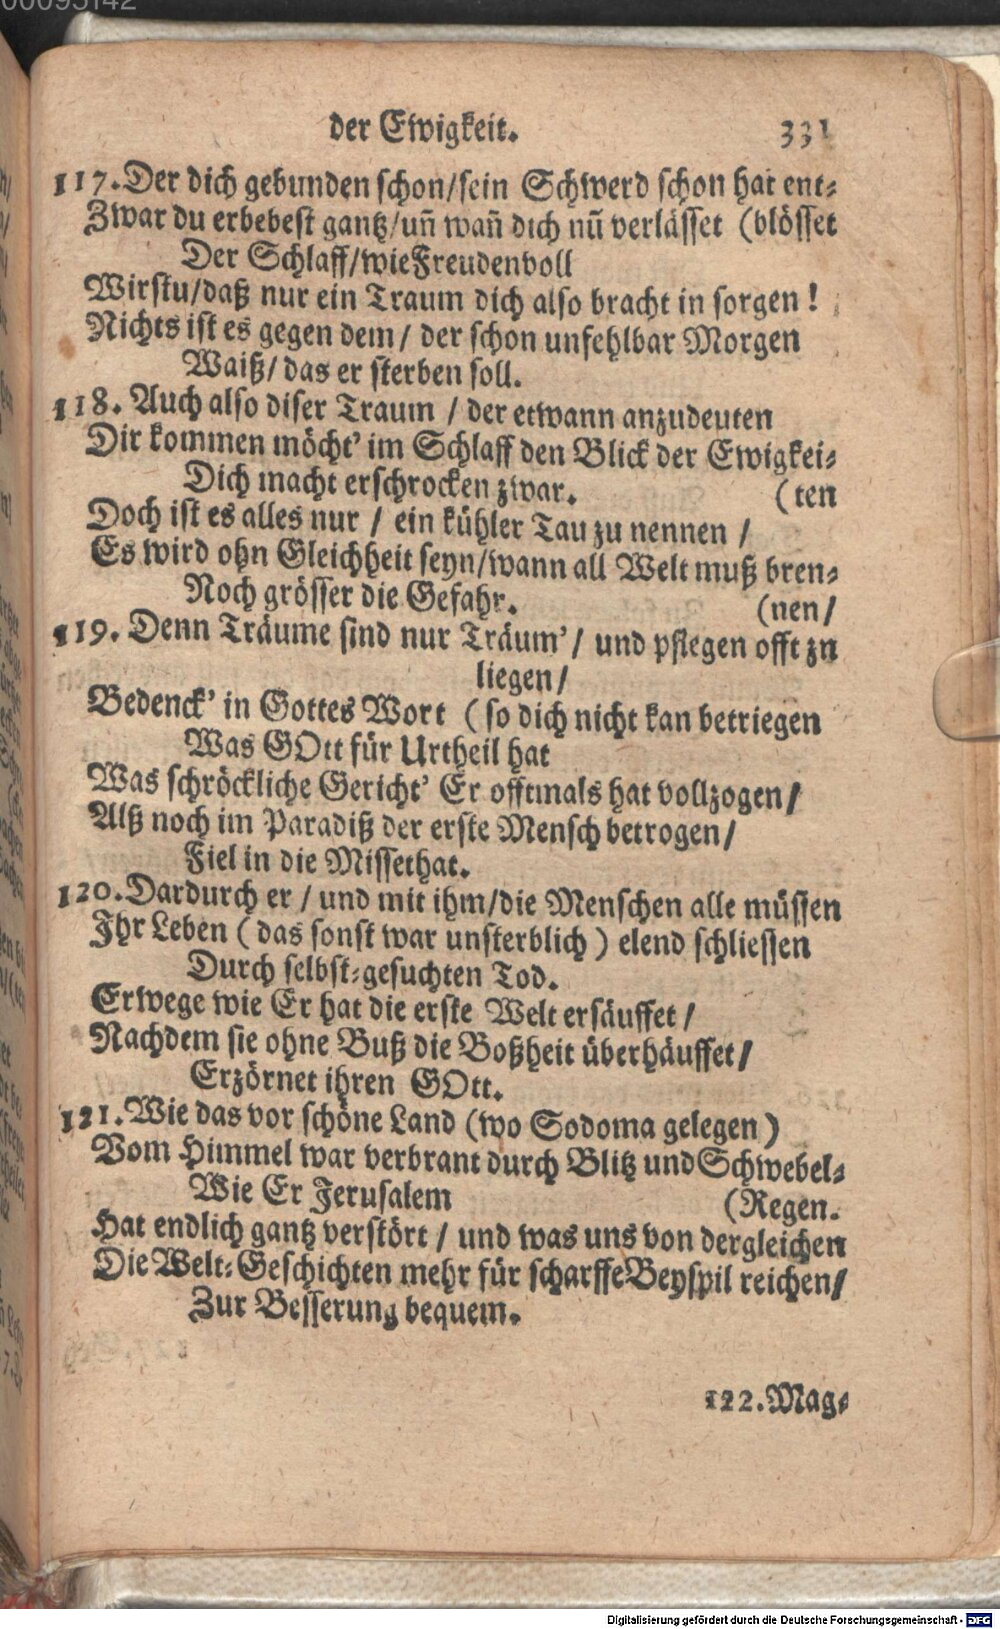 00095142
der Ewigkeit. 331
117. Der dich gebunden schon/sein Schwerd schon hat ent-
Zwar du erbebest gantz/uñ wañ dich nũ verlässet (blösset
Der Schlaff/wie Freudenvoll
Wirstu/daß nur ein Traum dich also bracht in sorgen!
Nichts ist es gegen dem/ der schon unfehlbar Morgen
Waiß/ das er sterben soll.
118. Auch also diser Traum / der etwann anzudeuten
Dir kommen möcht' im Schlaff den Blick der Ewigkei-
Dich macht erschrocken zwar. (ten
Doch ist es alles nur / ein kühler Tau zu nennen /
Es wird ohn Gleichheit seyn/wann all Welt muß bren-
Noch grösser die Gefahr. (nen/
119. Denn Träume sind nur Träum'/ und pflegen offt zu
liegen/
Bedenck' in Gottes Wort ( so dich nicht kan betriegen
Was GOtt für Urtheil hat
Was schröckliche Gericht' Er offtmals hat vollzogen/
Alß noch im Paradiß der erste Mensch betrogen/
Fiel in die Missethat.
120. Dardurch er / und mit ihm/die Menschen alle müssen
Ihr Leben ( das sonst war unsterblich ) elend schliessen
Durch selbst-gesuchten Tod.
Erwege wie Er hat die erste Welt ersäuffet /
Nachdem sie ohne Buß die Boßheit überhäuffet/
Erzörnet ihren GOtt.
121. Wie das vor schöne Land (wo Sodoma gelegen )
Vom Himmel war verbrant durch Blitz und Schwebel-
Wie Er Jerusalem (Regen.
Hat endlich gantz verstört / und was uns von dergleichen
Die Welt-Geschichten mehr für scharffe Beyspil reichen/
Zur Besserung bequem.
122. Mag-
Digitalisierung gefördert durch die Deutsche Forschungsgemeinschaft - DFG